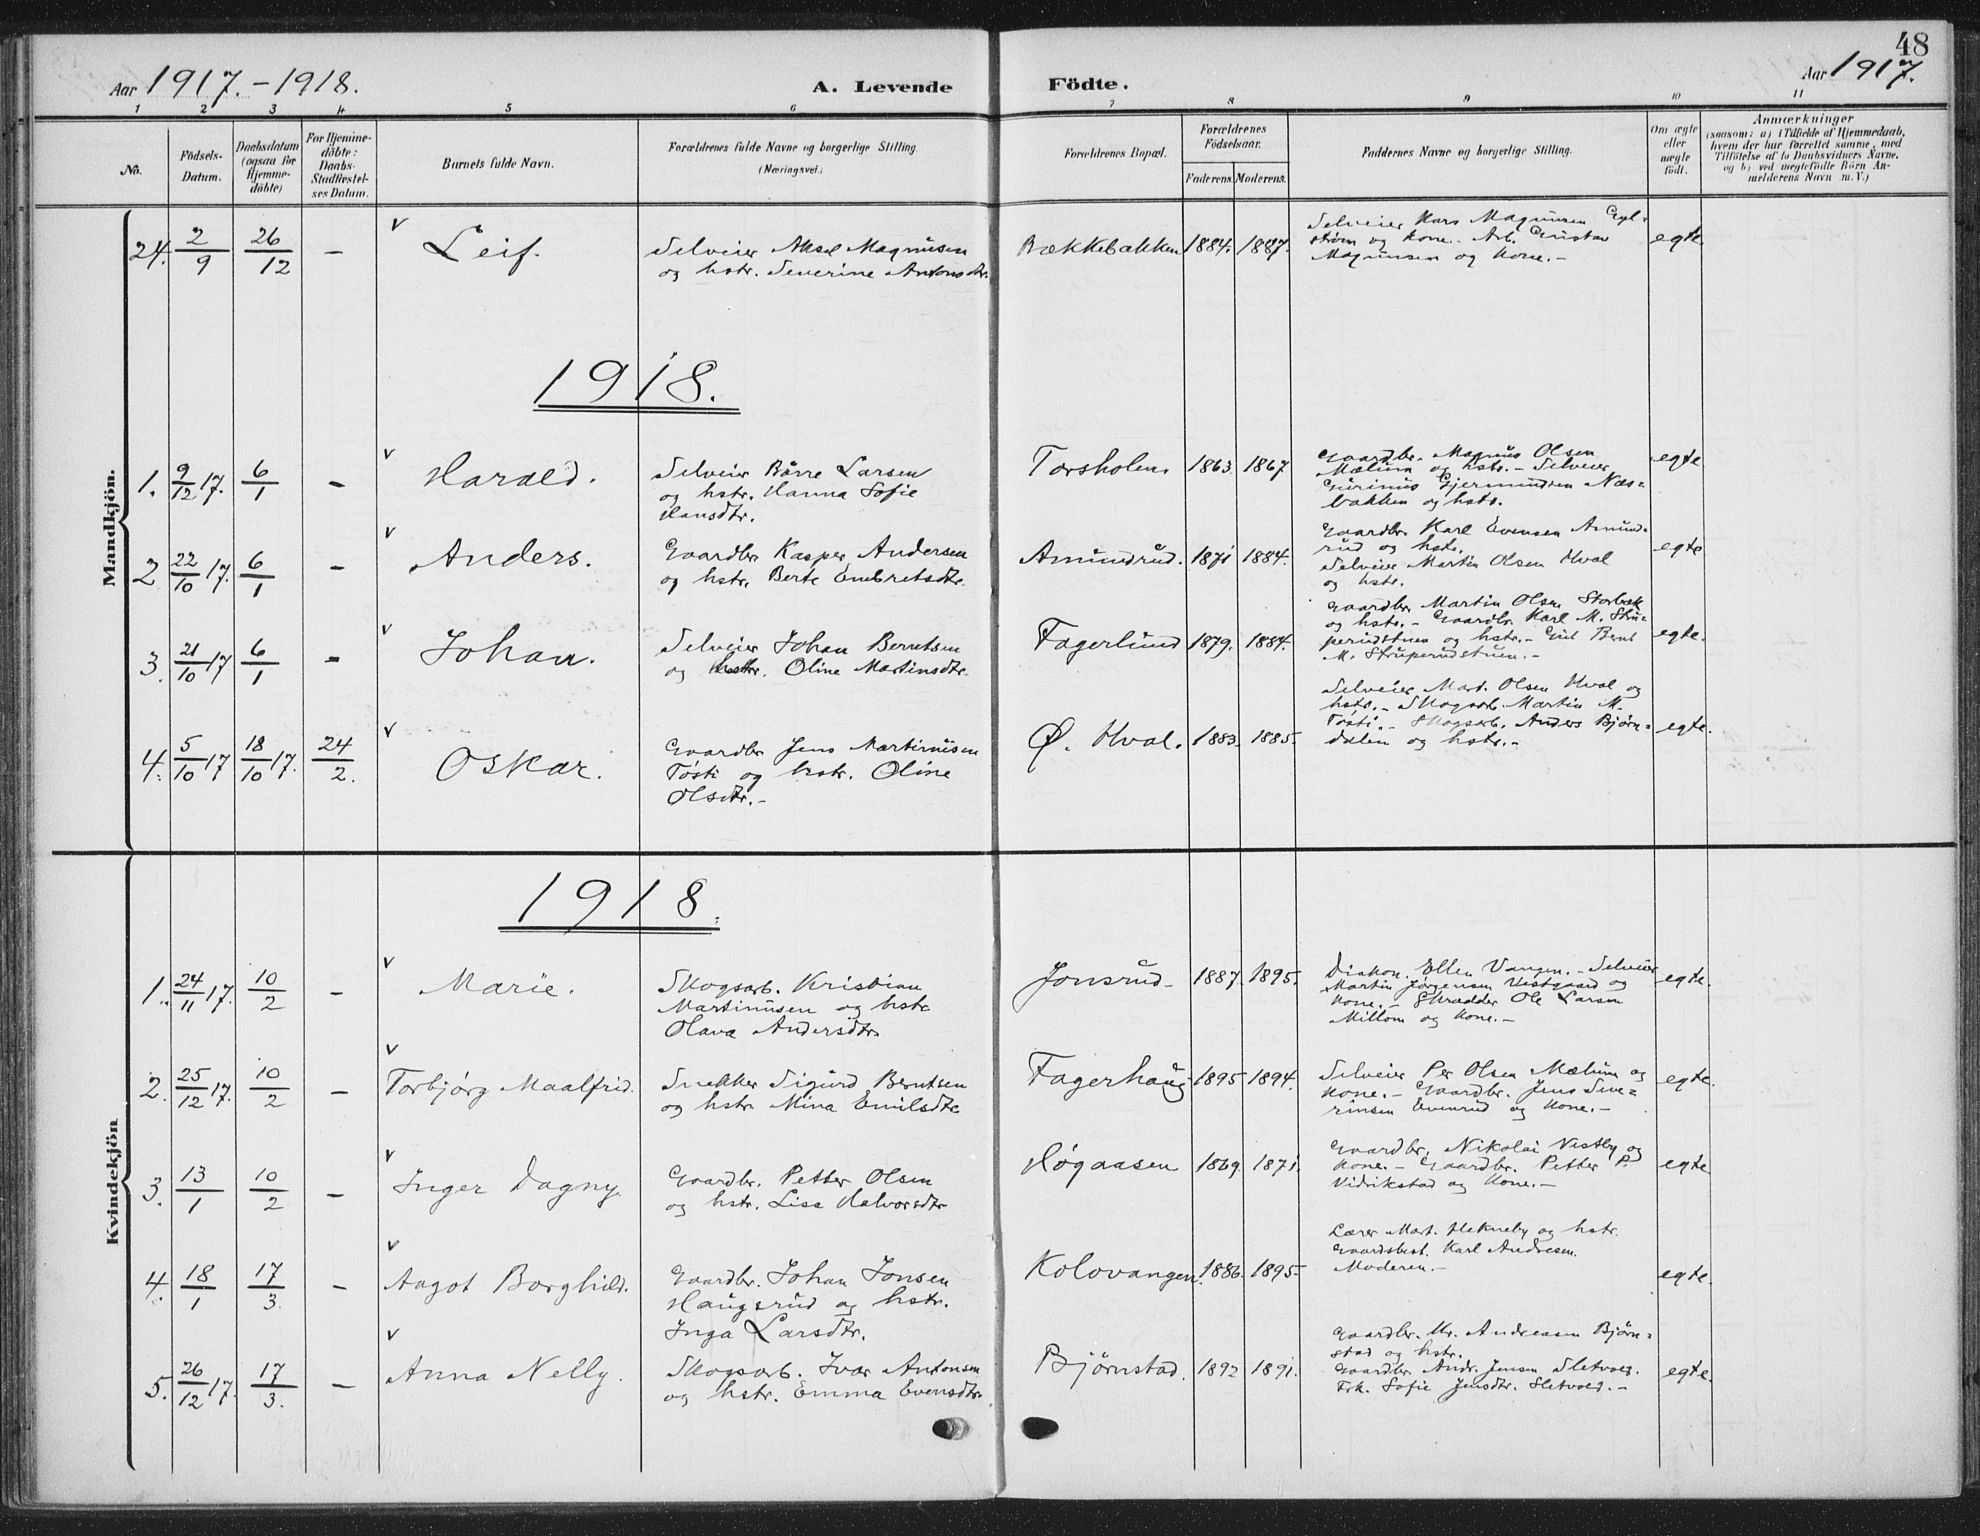 48
Aar 1917.-1918. A. Levende Födte. Aar 1917.
1 2 3 4 5 6 7 8 9 10 11
No.
Födsels-
Datum.
Daabsdatum
(ogsaa for
Hjemme-
döbte)
For Hjemme-
döbte:
Daabs-
Stadfæstel-
ses Datum.
Barnets fulde Navn.
Forældrenes fulde Navne og borgerlige Stilling
(Næringsvei.)
Forældrenes Bopæl.
Forældrenes
Födselsaar.
Faderens. Moderens.
Faddernes Navne og borgerlige Stilling.
Om ægte
eller
uægte
födt.
Anmærkninger
(saasom: a) i Tilfælde af Hjemmedaab,
hvem der har forrettet samme, med
Tilföielse af to Daabsvidners Navne,
og b) ved uægtefödte Börn An-
melderens Navn m. V.)
Mandkjön.
24. 2/9 26/12 – v Leif.
Selveier Aksel Magnusen
og hstr. Severine Antonsdtr.
Bækkebakken 1884. 1887.
Selveier Hars Magnusen
strøm og kone.- Arb. Gustav
Magnusen og kone.-
egte
1918.
1. 9/12 17. 6/1 – v Harald.
Selveier Børre Larsen
og hstr. Hanna Sofie
Hansdtr.
Torsholen 1863 1867
Gaardbr. Magnus Olsen
Mælum og hstr.- Selveier
Gjermundsen Næs-
bakken og hstr.
egte
2 22/10 17. 6/1 – v Anders.
Gaardbr. Kasper Andersen
og hstr. Berte Embretsdtr.
Amundrud. 1871 1884.
Gaardbr. Karl Evensen Amund-
rud og hstr.
Selveier Martin Olsen Hval
og hstr.
egte
3. 21/10 17 6/1 – v Johan.
Selveier Johan Berntsen
og hstr. Oline Martinsdtr.
Fagerlund 1879. 1884.
Gaardbr. Martin Olsen Storbæk
og hstr.- Gaardbr. Karl M. Stru-
perudstuen og hstr.- Gut Bernt
M. Struperudstuen.-
egte.
4. 5/10 17 18/10 17. 24/2. v Oskar.
Gaardbr. Jens Martinusen
Tosti og hstr. Oline
Olsdtr.-
Ø. Hval. 1883. 1885.
Selveier Mart. Olsen Hval og
hstr.- Skogsarb. Martin M.
Tosti.- Skogsarb. Anders Bjørn-
dalen og hstr.-
egte.
Kvindekjön
1918.
1. 24/11 17. 10/2 – v Marie.
Skogsarb. Kristian
Martinusen og hstr.
Olava Andersdtr.
Jonsrud 1887. 1895.
Diakon. Ellen Vangen.- Selveier
Martin Jørgensen Vestgaard og
kone.- Skrædder Ole Larsen
Millom og kone.-
egte.
2. 25/12 17. 10/2 – v Torbjørg Maalfrid.
Snekker Sigurd Berntsen
og hstr. Mina Emilsdtr.
Fagerhaug 1895 1894.
Selveier Per Olsen Mælum og
kone.- Gaardbr. Jens Seve-
rinsen Evenrud og kone.-
egte.
3. 13/1 10/2 – v Inger Dagny.
Gaardbr. Petter Olsen
og hstr. Lise Halvorsdtr.
Høgaasen 1869. 1871.
Gaardbr. Nikolai Vestby og
kone.- Gaardbr. Petter P.
Vidrikstad og kone.-
egte
4. 18/1 17/3. – v Aagot Borghild.
Gaardbr. Johan Jonsen
Haugsrud og hstr.
Inga Larsdtr.
Kolovangen. 1886. 1895.
Lærer Mart. Hekneby og hstr.
Gaardsbest. Karl Andresen.
Moderen.-
egte.
5. 26/12 17. 17/3. – v Anna Nelly.
Skogsarb. Ivar Antonsen
og hstr. Emma Evensdtr.
Bjørnstad. 1892 1891.
Gaardbr. Kr. Andreasen Bjørn-
stad og hstr.
Gaardbr. Andr. Jensen Sletvold.
Frk. Sofie Jensdtr. Sletvold.-
egte.